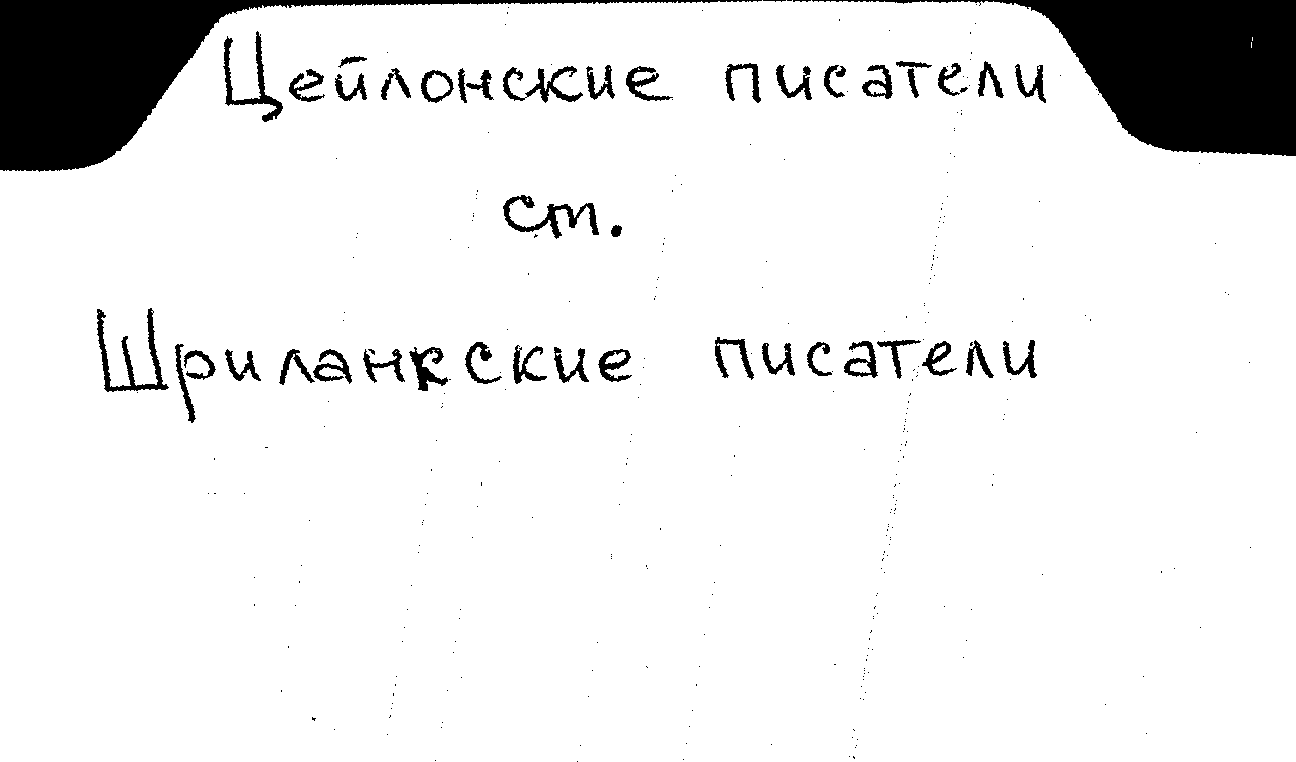 Цейлонские писатели
ст.
Шриланкские писатели